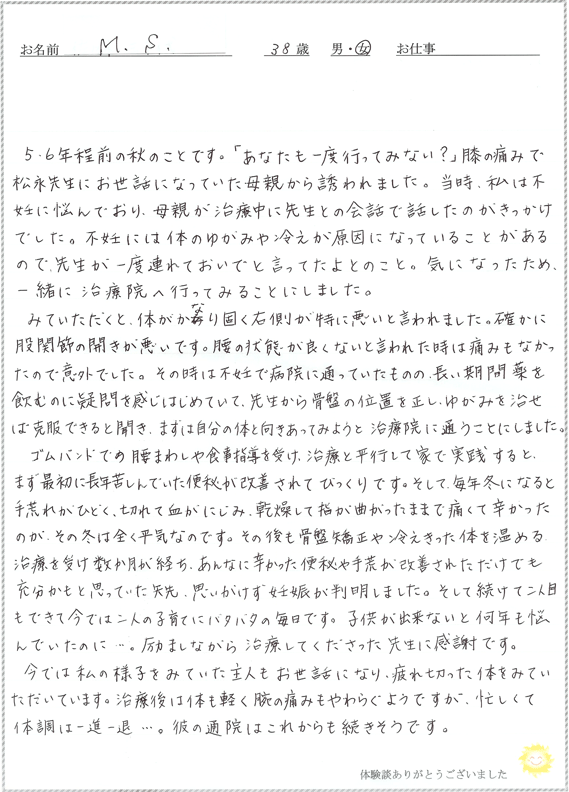 お名前 M. S. 38歳 男・女 お仕事
5・6年程前の秋のことです。「あなたも一度行ってみない？」膝の痛みで
松永先生にお世話になっていた母親から誘われました。当時、私は不
妊に悩んでおり、母親が治療中に先生との会話で話したのがきっかけ
でした。不妊には体のゆがみや冷えが原因になっていることがある
ので、先生が一度連れておいでと言ってたよとのこと。気になったため、
一緒に治療院へ行ってみることにしました。
みていただくと、体がかなり固く右側が特に悪いと言われました。確かに
股関節の開きが悪いです。腰の状態が良くないと言われた時は痛みもなかっ
たので意外でした。その時は不妊で病院に通っていたものの、長い期間薬を
飲むのに疑問を感じはじめていて、先生から骨盤の位置を正し、ゆがみを治せ
ば克服できると聞き、まずは自分の体と向きあってみようと治療院に通うことにしました。
ゴムバンドでの腰まわしや食事指導を受け、治療と平行して家で実践すると、
まず最初に長年苦しんでいた便秘が改善されてびっくりです。そして、毎年冬になると
手荒れがひどく、切れて血がにじみ、乾燥して指が曲がったままで痛くて辛かった
のが、その冬は全く平気なのです。その後も骨盤矯正や冷えきった体を温める
治療を受け数か月が経ち、あんなに辛かった便秘や手荒が改善されただけでも
充分かもと思っていた矢先、思いがけず妊娠が判明しました。そして続けて二人目
もできて今では二人の子育てにバタバタの毎日です。子供が出来ないと何年も悩
んでいたのに…。励ましながら治療してくださった先生に感謝です。
今では私の様子をみていた主人もお世話になり、疲れ切った体をみてい
ただいています。治療後は体も軽く腕の痛みもやわらぐようですが、忙しくて
体調は一進一退…。彼の通院はこれからも続きそうです。
体験談ありがとうございました